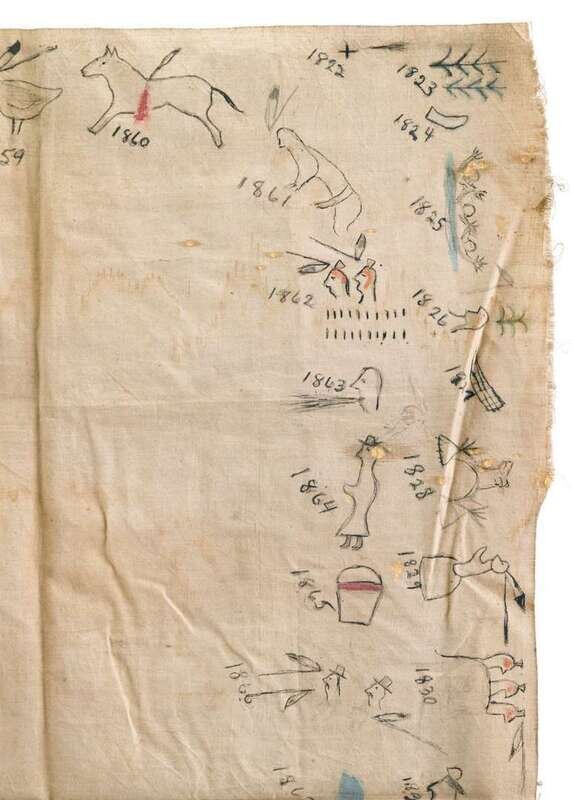 59
1860
1822
1823
1824
1861
1825
1862
1826
1863
1864
1828
1865
1829
1866
1830